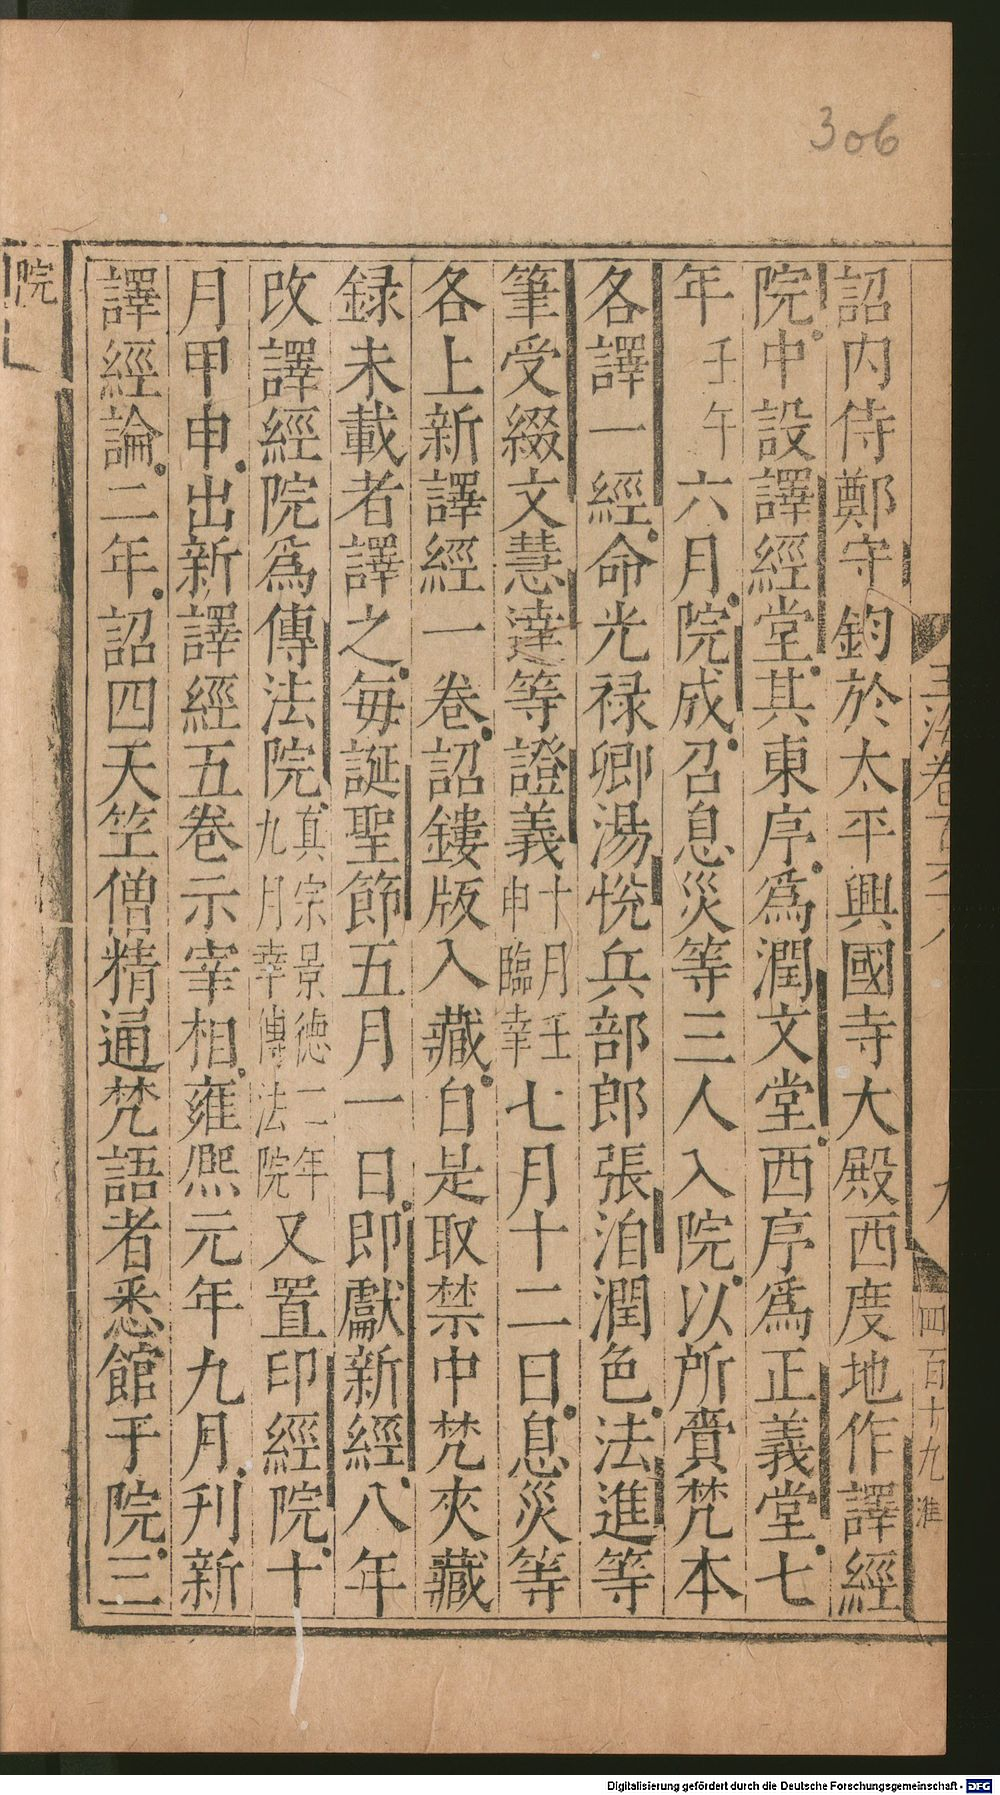 306
詔内侍鄭守鈞於太平興國寺大殿西度地作譯經
院中設譯經堂其東序爲潤文堂西序爲正義堂七
年壬午六月院成召息災等三人入院以所賫梵本
各譯一經命光禄卿湯悅兵部郎張洎潤色法進等
筆受綴文慧達等證義十月壬申臨幸七月十二日息災等
各上新譯經一卷詔鏤版入藏自是取禁中梵夾藏
録未載者譯之每誕聖節五月一日即獻新經八年
改譯經院爲傳法院真宗景德二年九月幸傳法院又置印經院十
月甲申出新譯經五卷示宰相雍熙元年九月刋新
譯經論二年詔四天竺僧精通梵語者悉館于院三
玉海卷百六八
九
四百十九
淮
院
Digitalisierung gefördert durch die Deutsche Forschungsgemeinschaft - DFG